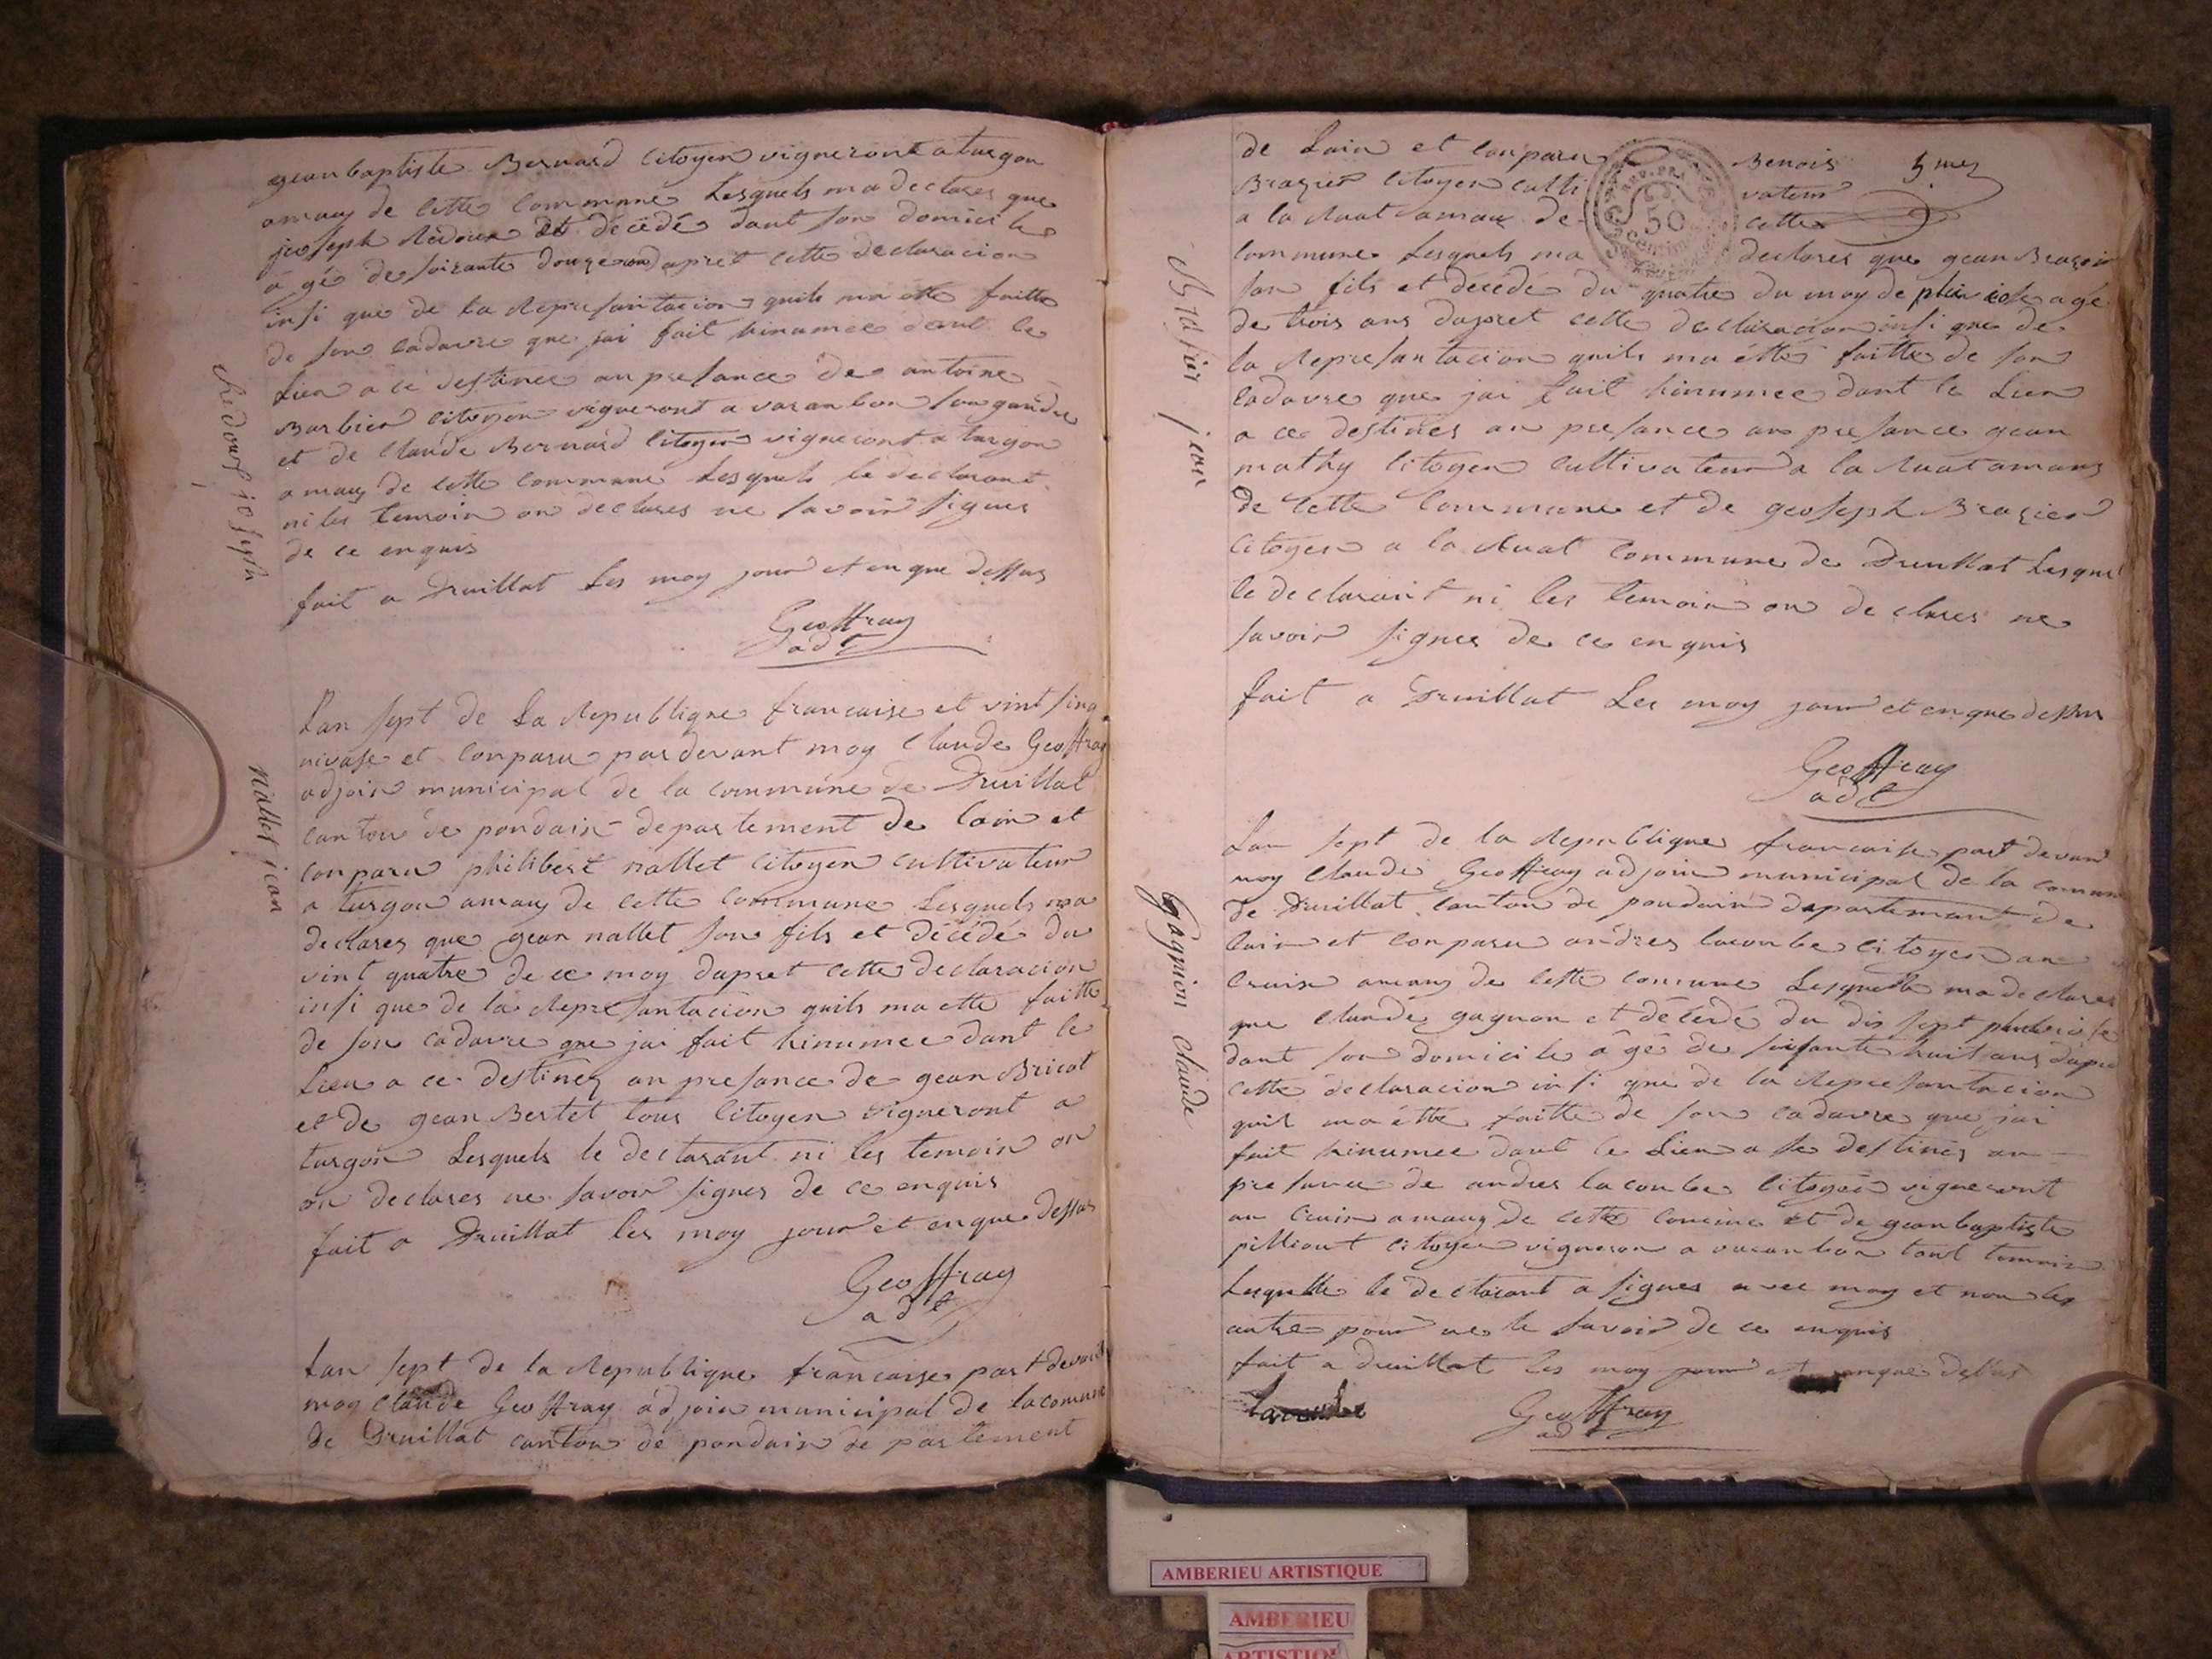 gean baptiste Bernard citoyen vigneront a turgon
amaux de cette commune Lesquels ma declares que
joseph Redoux et décédé dant son domicile
a gé de soixante douze ans dapret cette declaracion
insi que de la Représantacion quils ma etté faitte
de son cadavre que jai fait hinumee dant le
Lieu a ce destinee an presance de antoine
Barbier citoyen vigneront a varanbon son gandre
et de Claude Bernard citoyen vigneront a turgon
amaux de cette commune Lesquels le declarant
ni les temoin on declares ne savoir signer
de ce enquis
fait a Druillat Les moy jour et en que dessus
Geoffray
adt
Redoux joseph
Lan sept de La Republique francaise et vint sinq
nivose et conparu pardevant moy Claude Geoffray
adjoin municipal de la commune de Druillat
canton de pondain departement de lain et
conparu philibert nallet citoyen cultivateur
a turgon amaux de cette commune Lesquels ma
declares que gean nallet son fils et décédé du
vint quatre de ce moy dapret cette declaracion
insi que de la Represantacion quils ma etté faitte
de son cadavre que jai fait hinumee dant le
Lieu a ce destinez an presance de gean Bricot
et de gean Bertet tous citoyen vigneront a
turgon Lesquels le declarant ni les temoin on
on declares ne savoir signer de ce enquis
fait a Druillat les moy jour et en que dessus
Geoffray
adt
nallet jean
Lan sept de la Republique francaise part devant
moy Claude Geoffray adjoin municipal de la comune
de Druillat canton de pondain de partement
de Lain et conparu Benois 5 mes
Brazier citoyen culti vateur
a la Ruat amaux de cette
REP. FRA.
50
centim
commune Lesquels ma declares que gean Brazier
son fils et décédé du quatre du moy de pluviose agé
de trois ans dapret cette declaracion insi que de
la Represantacion quils ma étté faitte de son
cadavre que jai fait hinumee dant le Lieu
a ce destinés an presance an presance gean
mathy citoyen cultivateur a la Ruat amaux
de cette commune et de geoseph Brazier
citoyen a la Ruat commune de Druillat Lesquel
le declarant ni les temoin on declares ne
savoir signer de ce enquis
fait a Druillat Les moy jour et en que dessus
Geoffray
adt
Brasier jean
Lan sept de la Republique francaise part devant
moy Claude Geoffray adjoin municipal de la comune
de Druillat canton de pondain departemant de
lain et conparu andres lacoube citoyen au
Cruix amaux de cette comune Lesquelle ma declares
que Claude gagnon et décédé du dis sept pluviose
dant son domicile a gé de soisante huit ans dapre
cette declaracion insi que de la Represantacion
quil ma étte faitte de son cadavre que jai
fait hinumee dant le Lieu a se destinés an
presance de andres lacoube citoyen vigneront
au Cruix amaux de cette comune et de gean baptiste
pilliout citoyen vigneron a varanbon tout temoin
Lesquelle le declarant a signer avec moy et non les
autre pour ne le savoir de ce enquis
fait a Druillat les moy jour et enque dessus
Lacoube Geoffray
adt
Gagnion Claude
AMBERIEU ARTISTIQUE
AMBERIEU
ARTISTIQU